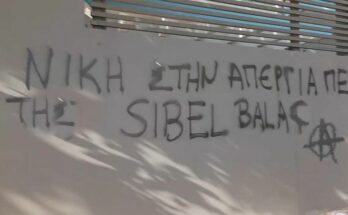 ΝΙΚΗ ΣΤΗΝ ΑΠΕΡΓΙΑ ΠΕ
ΤΗΣ SIBEL BALAÇ